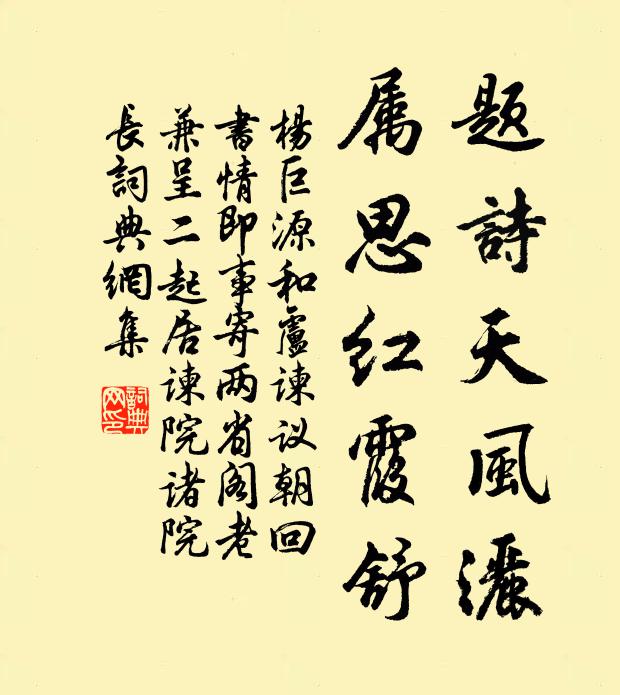 題詩天風灑
属思红霞舒
楊巨源和盧諫议朝回
書情即事寄两省阁老
兼呈二起居諫院诸院
長詞典網集
詞典网印